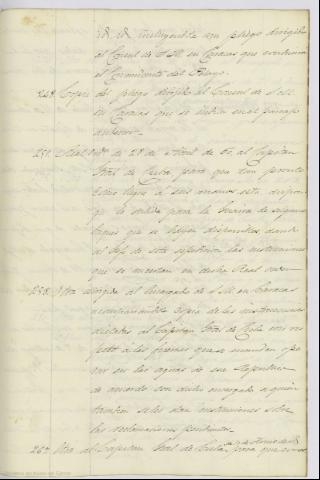 id. id. incluyendole un pliego dirigido
al Consul de S. M. en Caracas que condusera
el
248. Copia del pliego dirijido al Consul de S. M.
en Caracas que se indica en el parrafo
anterior.
251. Real orden de 28 de Abril de 60, al Capitan
Gral de Cuba para que tan pronto
como llegue á sus manos esta dispon
ga la salida para la Guaira de algunos
buques que se hallen disponibles, dando
al Gefe de esta espedicion las instrucciones
que se insertan en dicha Real orden
258. Otra dirigida al Encargado de S. M. en Caracas
acompañandole copia de las instrucciones
dictadas al Capitan Gral de Cuba con res
pecto á las fuerzas que se mandan ope
rar en las aguas de esa Republica
de acuerdo con dicho encargado á quien
tambien se le dan instrucciones sobre
las reclamaciones pendientes.
267. Otra al Capitan Gral de Cuba para que